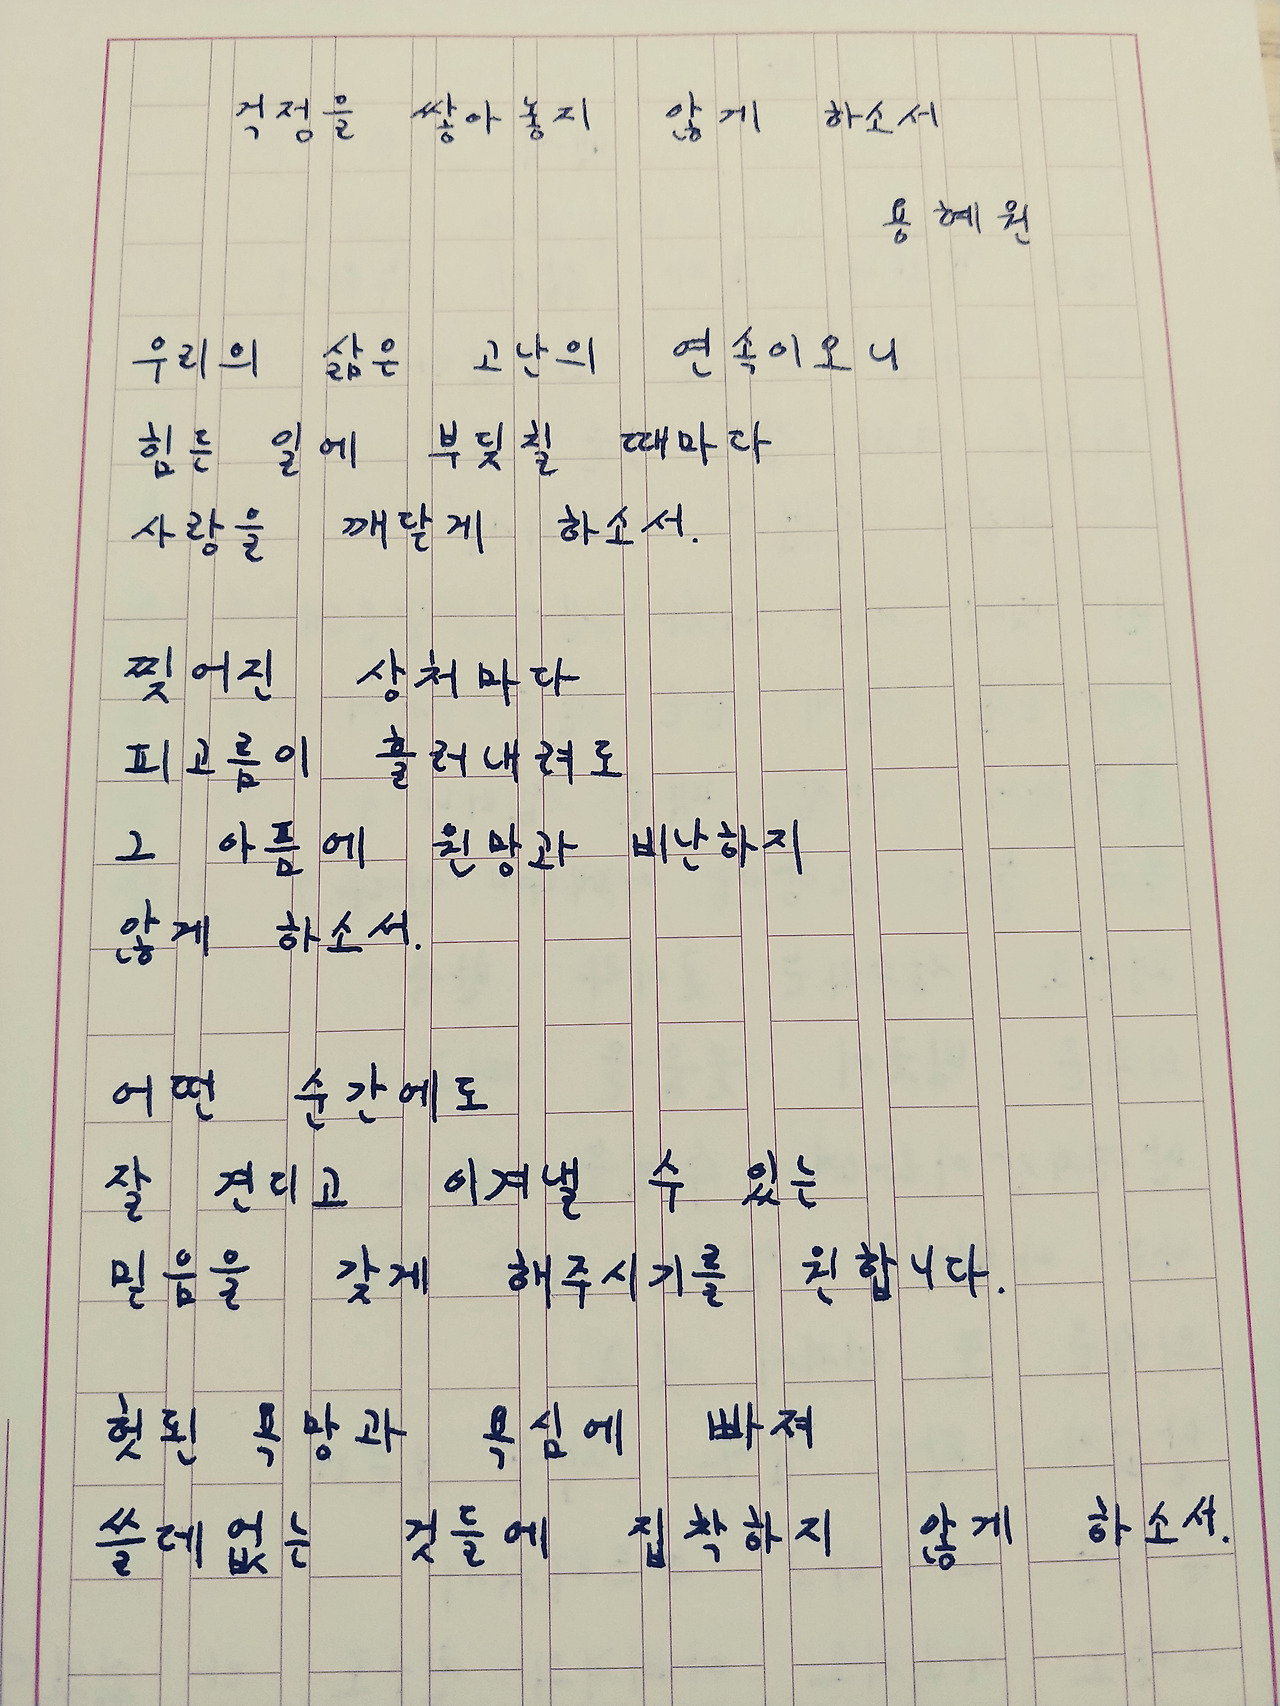 걱정을 쌓아놓지 않게 하소서
용혜원
우리의 삶은 고난의 연속이오니
힘든 일에 부딪칠 때마다
사랑을 깨닫게 하소서.
찢어진 상처마다
피고름이 흘러내려도
그 아픔에 원망과 비난하지
않게 하소서.
어떤 순간에도
잘 견디고 이겨낼 수 있는
믿음을 갖게 해주시기를 원합니다.
헛된 욕망과 욕심에 빠져
쓸데없는 것들에 집착하지 않게 하소서.